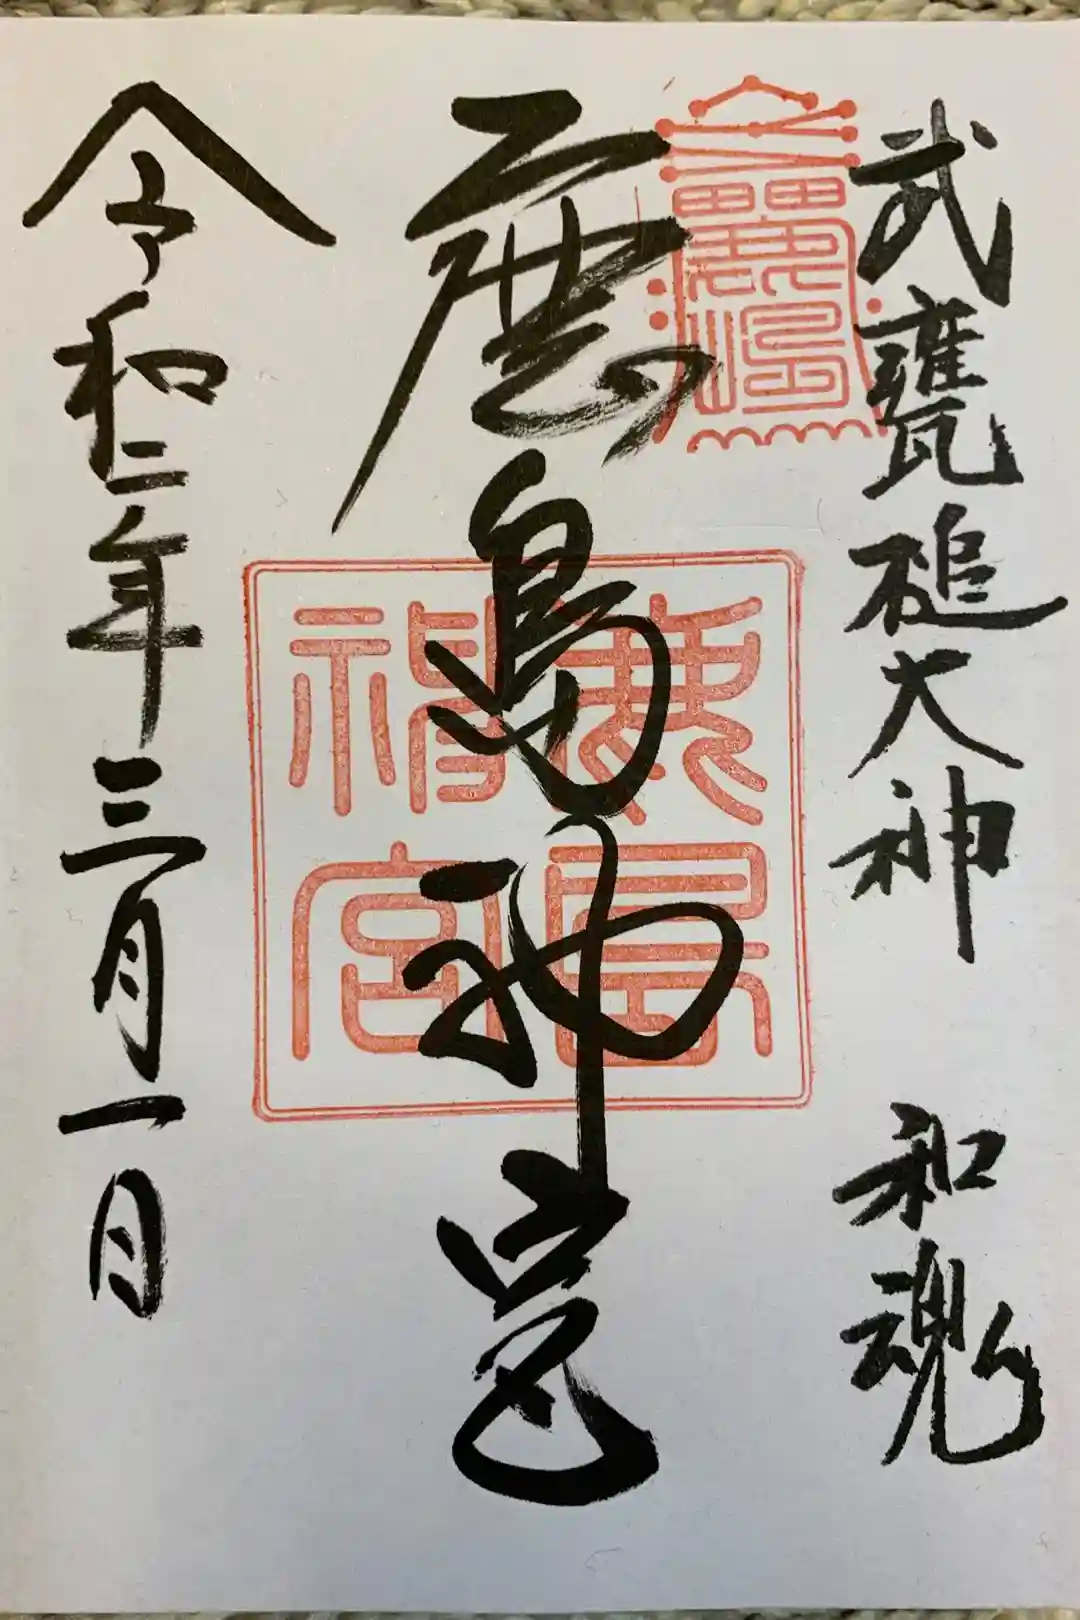 武甕槌大神　和魂
鹿島神宮
鹿島
神宮
令和二年三月一日